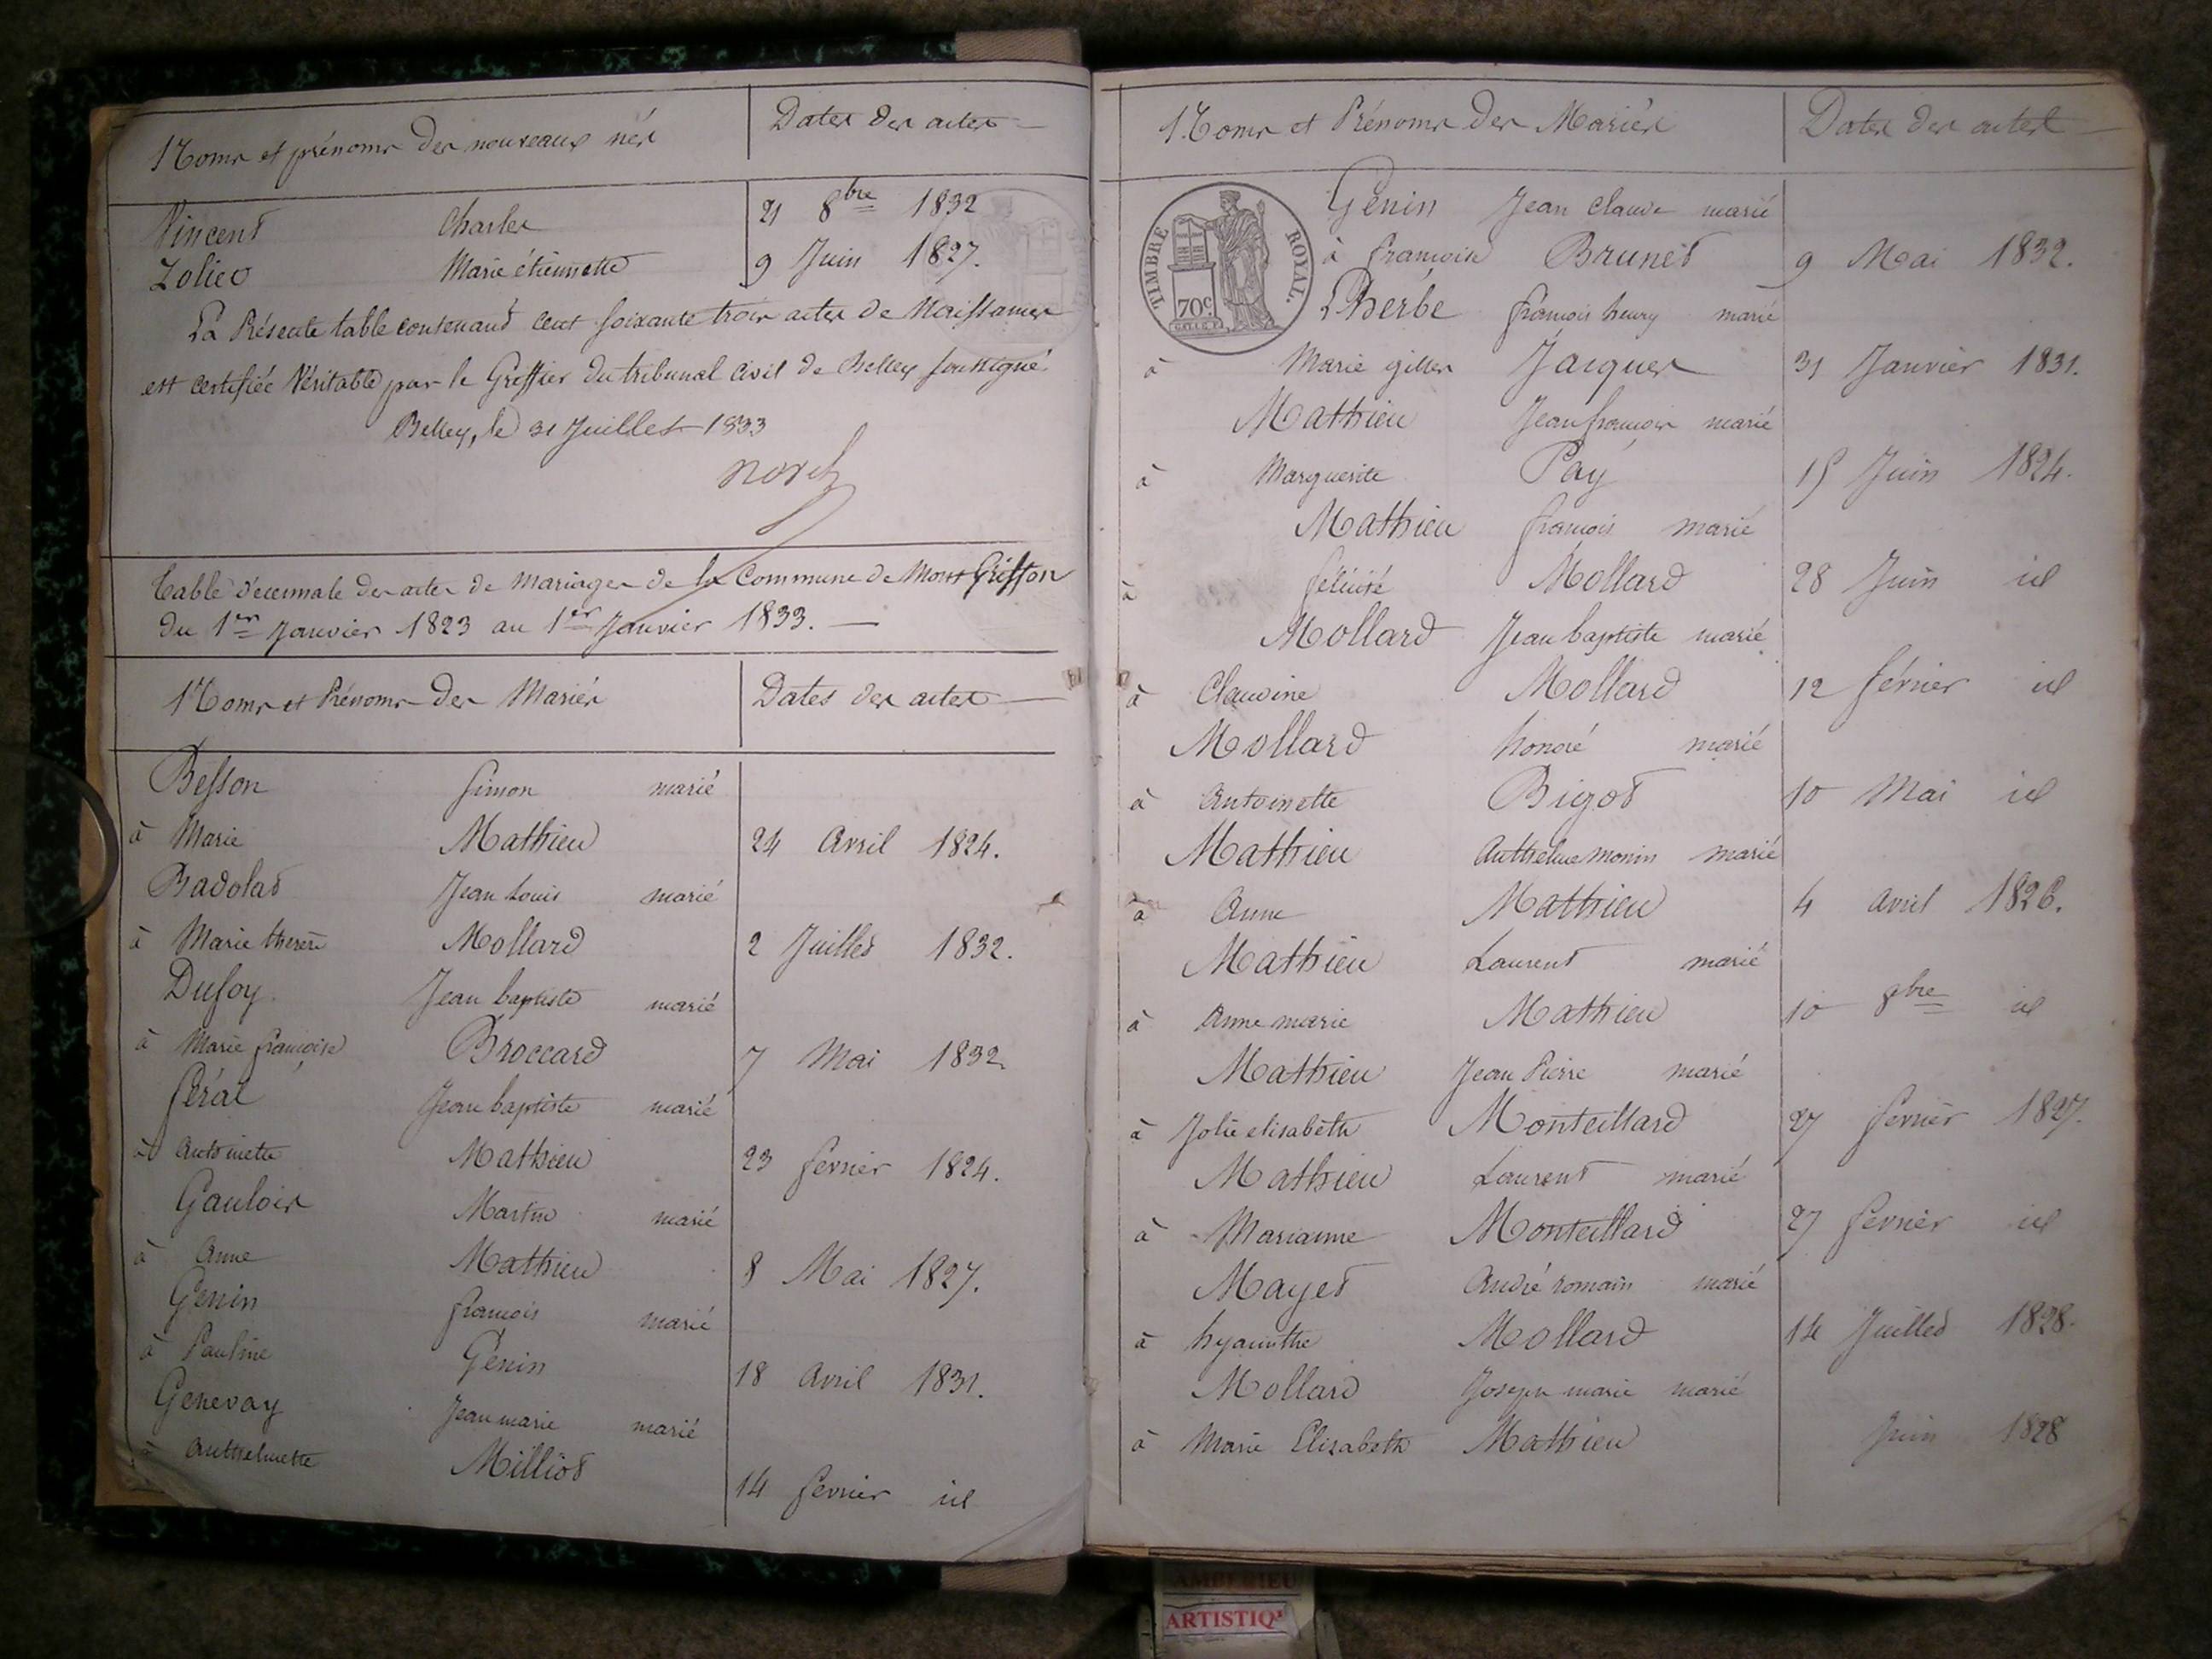 Noms et prénoms des nouveaux nés Dates des actes
Vincent Charles 21 8bre 1832
Zolico Marie étiennette 9 Juin 1827.
La Présente table contenant cent soixante trois actes de Naissances
est certifiée Véritable par le Greffier du tribunal Civil de Belley soussigné
Belley, le 31 Juillet 1833
Table décennale des actes de Mariages de la Commune de Mont Griffon
du 1er Janvier 1823 au 1er Janvier 1833.
Noms et Prénoms des Mariés Dates des actes
Besson Simon marié
à Marie Mathieu 24 Avril 1824.
Badolat Jean Louis marié
à Marie therèse Mollard 2 Juillet 1832.
Dufoy Jean baptiste marié
à Marie françoise Broccard 7 Mai 1832
féral Jean baptiste marié
à Antoinette Mathieu 23 fevrier 1824.
Gaulois Martin marié
à Anne Mathieu 8 Mai 1827.
Genin françois marié
à Pauline Genin 18 Avril 1831.
Genevay Jean marie marié
à Anthelmette Milliot 14 fevrier id
Noms et Prénoms des Mariés Dates des actes
TIMBRE ROYAL.
70c
Génin Jean Claude marié
à françoise Brunet 9 Mai 1832.
Lherbe françois henry marié
à Marie gilles Jacques 31 Janvier 1831.
Mathieu Jean françois marié
à Marguerite Pay 15 Juin 1824.
Mathieu françois marié
à félicité Mollard 28 Juin id
Mollard Jean baptiste marié
à Claudine Mollard 12 février id
Mollard honoré marié
à Antoinette Bigot 10 Mai id
Mathieu Anthelme monin marié
à Anne Mathieu 4 Avril 1826.
Mathieu Laurent marié
à Anne marie Mathieu 10 8bre id
Mathieu Jean Pierre marié
à Jolie elisabeth Monteillard 27 fevrier 1827.
Mathieu Laurent marié
à Marianne Monteillard 27 fevrier id
Mayet André romain marié
à hyacinthe Mollard 14 Juillet 1828.
Mollard Joseph marie marié
à Marie Elizabeth Mathieu Juin 1828
AMBERIEU
ARTISTIQ